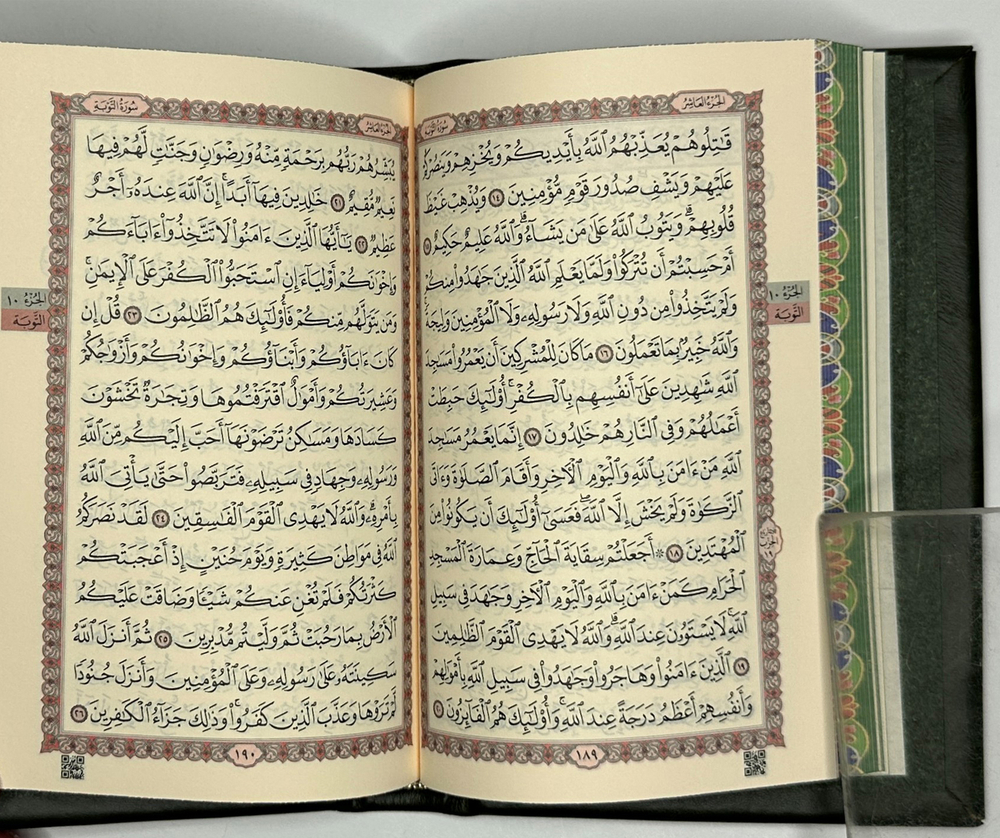 الجزء العاشر
سورة التوبة
قَـٰتِلُوهُمْ يُعَذِّبْهُمُ ٱللَّهُ بِأَيْدِيكُمْ وَيُخْزِهِمْ وَيَنصُرْكُمْ
عَلَيْهِمْ وَيَشْفِ صُدُورَ قَوْمٍ مُّؤْمِنِينَ ١٤ وَيُذْهِبْ غَيْظَ
قُلُوبِهِمْ ۗ وَيَتُوبُ ٱللَّهُ عَلَىٰ مَن يَشَآءُ ۗ وَٱللَّهُ عَلِيمٌ حَكِيمٌ ١٥
أَمْ حَسِبْتُمْ أَن تُتْرَكُوا۟ وَلَمَّا يَعْلَمِ ٱللَّهُ ٱلَّذِينَ جَـٰهَدُوا۟ مِنكُمْ
وَلَمْ يَتَّخِذُوا۟ مِن دُونِ ٱللَّهِ وَلَا رَسُولِهِۦ وَلَا ٱلْمُؤْمِنِينَ وَلِيجَةً ۚ
وَٱللَّهُ خَبِيرٌۢ بِمَا تَعْمَلُونَ ١٦ مَا كَانَ لِلْمُشْرِكِينَ أَن يَعْمُرُوا۟ مَسَـٰجِدَ
ٱللَّهِ شَـٰهِدِينَ عَلَىٰٓ أَنفُسِهِم بِٱلْكُفْرِ ۚ أُو۟لَـٰٓئِكَ حَبِطَتْ
أَعْمَـٰلُهُمْ وَفِى ٱلنَّارِ هُمْ خَـٰلِدُونَ ١٧ إِنَّمَا يَعْمُرُ مَسَـٰجِدَ
ٱللَّهِ مَنْ ءَامَنَ بِٱللَّهِ وَٱلْيَوْمِ ٱلْـَٔاخِرِ وَأَقَامَ ٱلصَّلَوٰةَ وَءَاتَى
ٱلزَّكَوٰةَ وَلَمْ يَخْشَ إِلَّا ٱللَّهَ ۖ فَعَسَىٰٓ أُو۟لَـٰٓئِكَ أَن يَكُونُوا۟ مِنَ
ٱلْمُهْتَدِينَ ١٨ ۞ أَجَعَلْتُمْ سِقَايَةَ ٱلْحَآجِّ وَعِمَارَةَ ٱلْمَسْجِدِ
ٱلْحَرَامِ كَمَنْ ءَامَنَ بِٱللَّهِ وَٱلْيَوْمِ ٱلْـَٔاخِرِ وَجَـٰهَدَ فِى سَبِيلِ
ٱللَّهِ ۚ لَا يَسْتَوُۥنَ عِندَ ٱللَّهِ ۗ وَٱللَّهُ لَا يَهْدِى ٱلْقَوْمَ ٱلظَّـٰلِمِينَ
١٩ ٱلَّذِينَ ءَامَنُوا۟ وَهَاجَرُوا۟ وَجَـٰهَدُوا۟ فِى سَبِيلِ ٱللَّهِ بِأَمْوَٰلِهِمْ
وَأَنفُسِهِمْ أَعْظَمُ دَرَجَةً عِندَ ٱللَّهِ ۚ وَأُو۟لَـٰٓئِكَ هُمُ ٱلْفَآئِزُونَ ٢٠
١٨٩
الجزء ١٠
التوبة
الجزء العاشر
سورة التوبة
يُبَشِّرُهُمْ رَبُّهُم بِرَحْمَةٍ مِّنْهُ وَرِضْوَٰنٍ وَجَنَّـٰتٍ لَّهُمْ فِيهَا
نَعِيمٌ مُّقِيمٌ ٢١ خَـٰلِدِينَ فِيهَآ أَبَدًا ۚ إِنَّ ٱللَّهَ عِندَهُۥٓ أَجْرٌ
عَظِيمٌ ٢٢ يَـٰٓأَيُّهَا ٱلَّذِينَ ءَامَنُوا۟ لَا تَتَّخِذُوٓا۟ ءَابَآءَكُمْ
وَإِخْوَٰنَكُمْ أَوْلِيَآءَ إِنِ ٱسْتَحَبُّوا۟ ٱلْكُفْرَ عَلَى ٱلْإِيمَـٰنِ ۚ
وَمَن يَتَوَلَّهُم مِّنكُمْ فَأُو۟لَـٰٓئِكَ هُمُ ٱلظَّـٰلِمُونَ ٢٣ قُلْ إِن
كَانَ ءَابَآؤُكُمْ وَأَبْنَآؤُكُمْ وَإِخْوَٰنُكُمْ وَأَزْوَٰجُكُمْ
وَعَشِيرَتُكُمْ وَأَمْوَٰلٌ ٱقْتَرَفْتُمُوهَا وَتِجَـٰرَةٌ تَخْشَوْنَ
كَسَادَهَا وَمَسَـٰكِنُ تَرْضَوْنَهَآ أَحَبَّ إِلَيْكُم مِّنَ ٱللَّهِ
وَرَسُولِهِۦ وَجِهَادٍ فِى سَبِيلِهِۦ فَتَرَبَّصُوا۟ حَتَّىٰ يَأْتِىَ ٱللَّهُ
بِأَمْرِهِۦ ۗ وَٱللَّهُ لَا يَهْدِى ٱلْقَوْمَ ٱلْفَـٰسِقِينَ ٢٤ لَقَدْ نَصَرَكُمُ
ٱللَّهُ فِى مَوَاطِنَ كَثِيرَةٍ ۙ وَيَوْمَ حُنَيْنٍ ۙ إِذْ أَعْجَبَتْكُمْ
كَثْرَتُكُمْ فَلَمْ تُغْنِ عَنكُمْ شَيْـًٔا وَضَاقَتْ عَلَيْكُمُ
ٱلْأَرْضُ بِمَا رَحُبَتْ ثُمَّ وَلَّيْتُم مُّدْبِرِينَ ٢٥ ثُمَّ أَنزَلَ ٱللَّهُ
سَكِينَتَهُۥ عَلَىٰ رَسُولِهِۦ وَعَلَى ٱلْمُؤْمِنِينَ وَأَنزَلَ جُنُودًا
لَّمْ تَرَوْهَا وَعَذَّبَ ٱلَّذِينَ كَفَرُوا۟ ۚ وَذَٰلِكَ جَزَآءُ ٱلْكَـٰفِرِينَ ٢٦
١٩٠
الجزء ١٠
التوبة